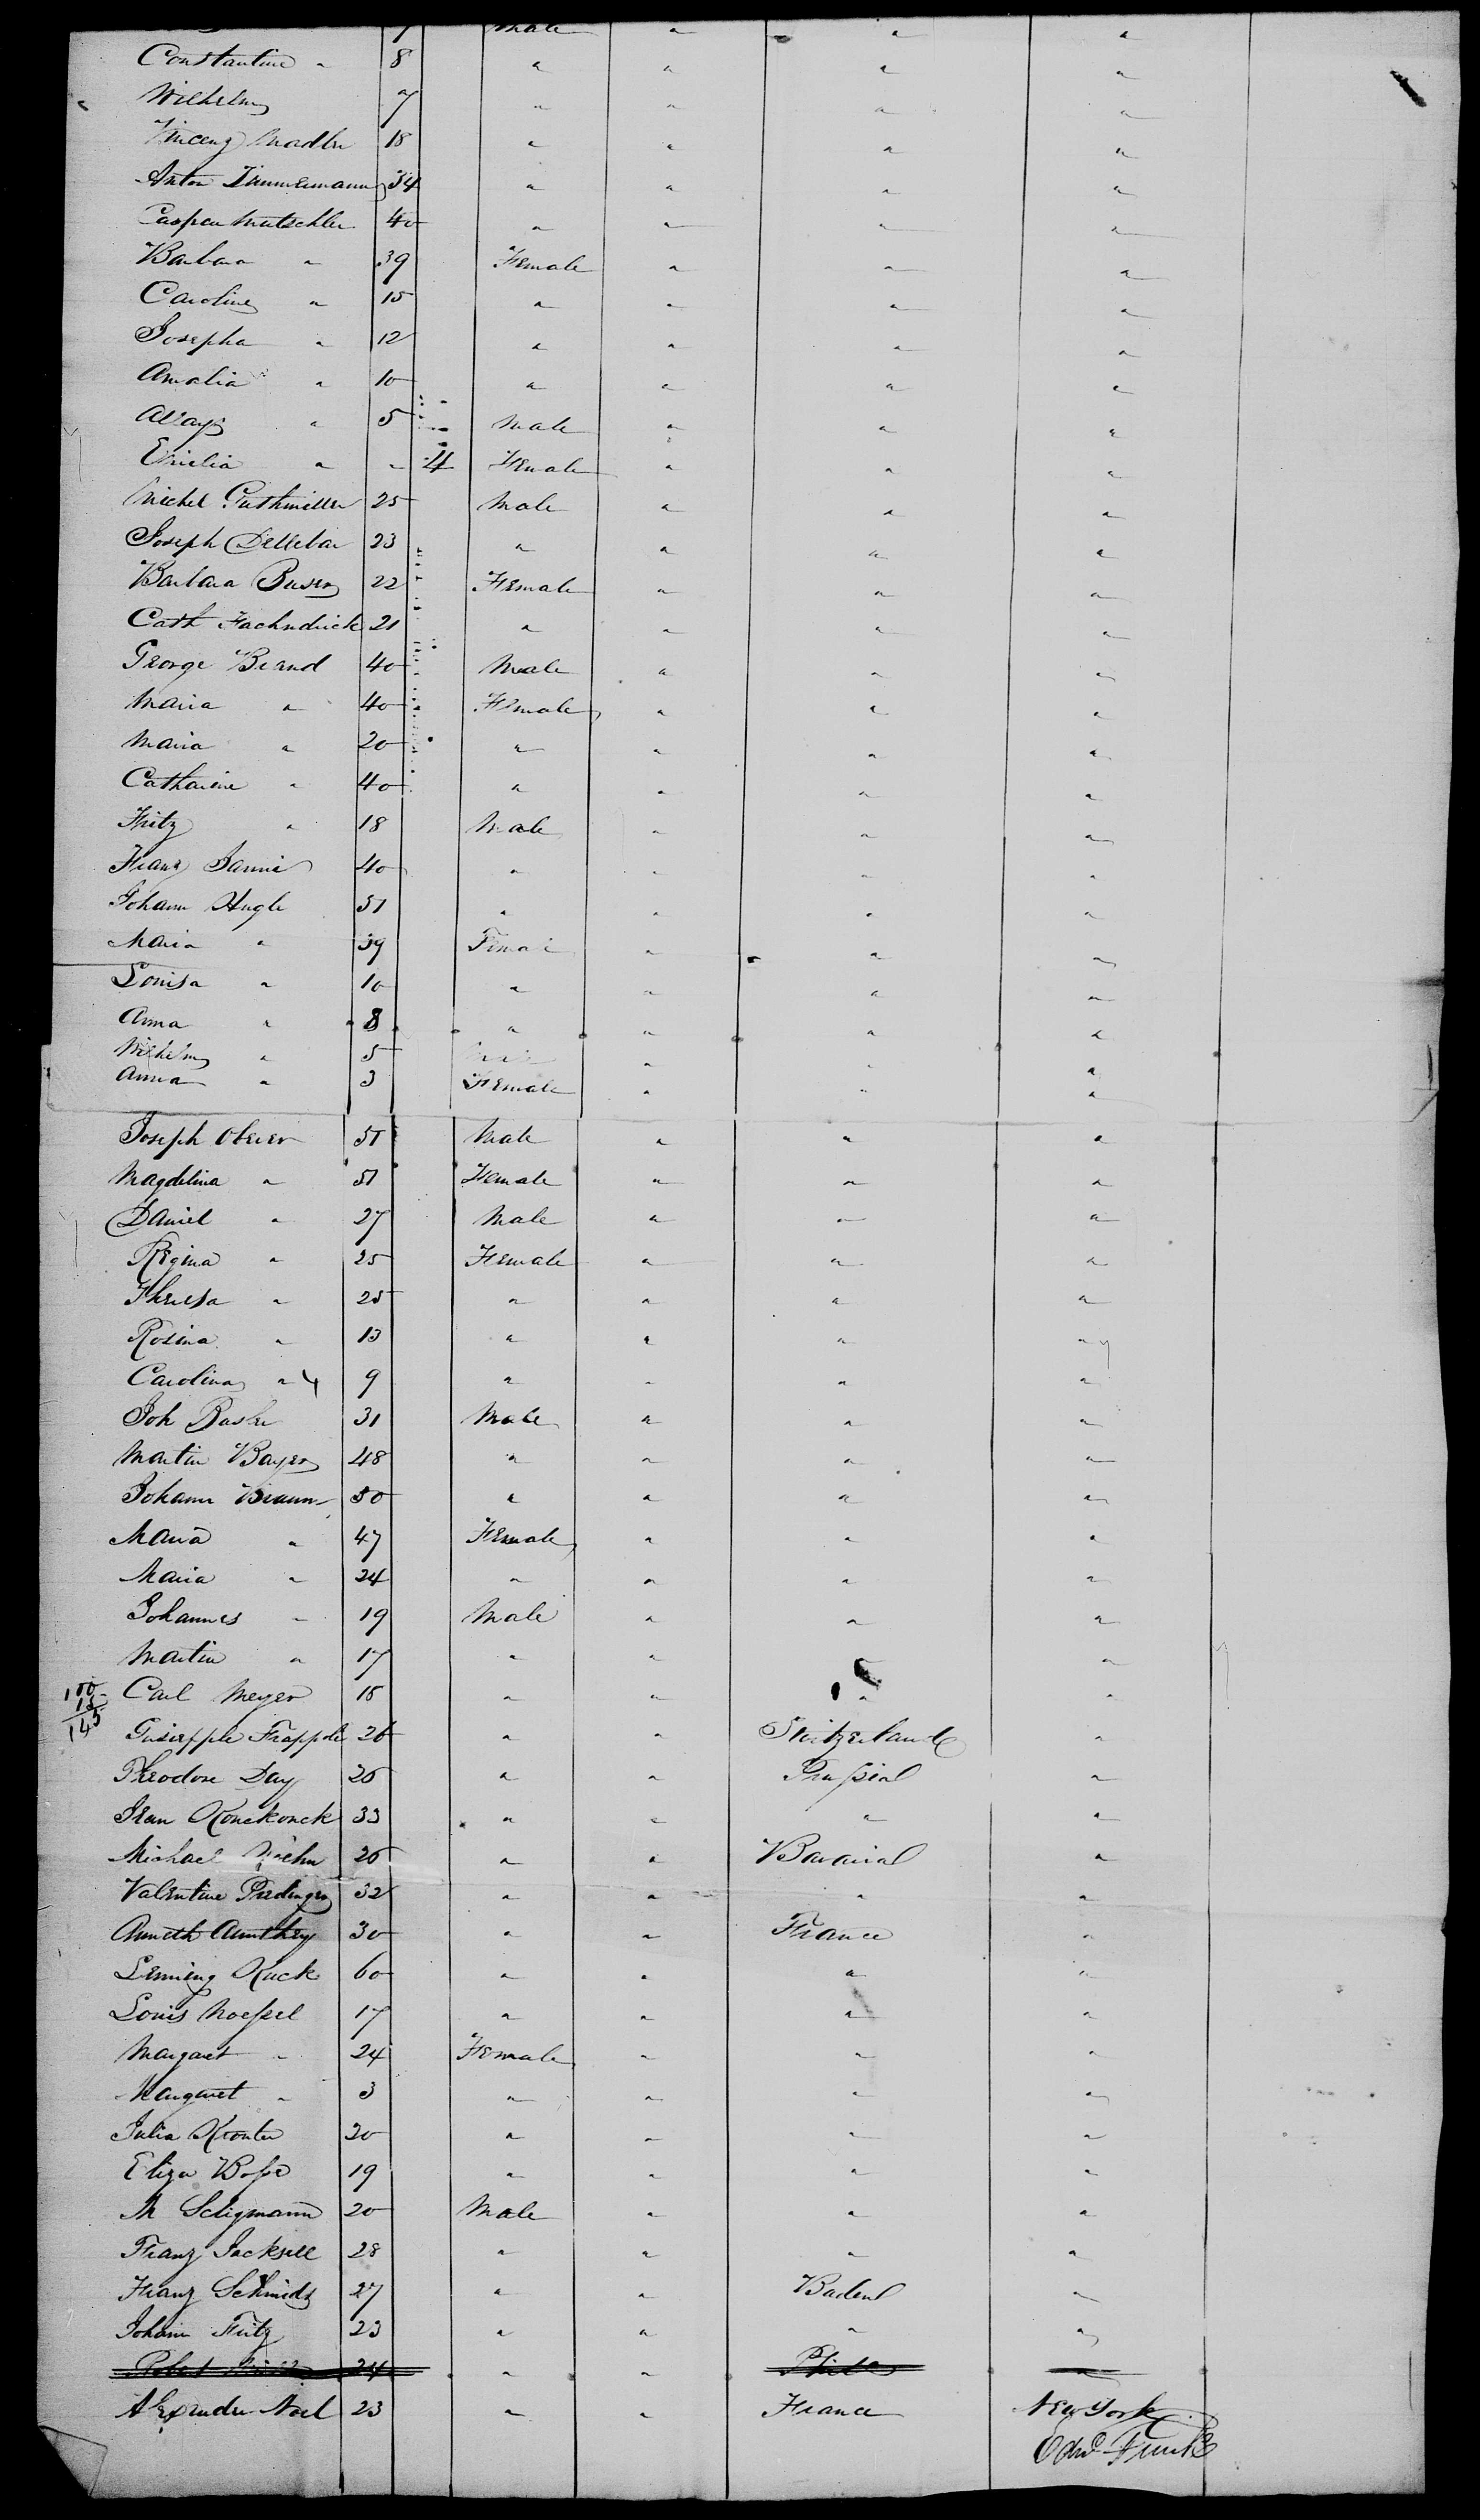 7 Male " " "
Constantine " 8 " " " "
Wilhelm 7 " " " "
Vincenz Madler 18 " " " "
Anton Zimmermann 34 " " " "
Caspar Mutschler 40 " " " "
Barbara " 39 Female " " "
Caroline " 15 " " " "
Josepha " 12 " " " "
Amalia " 10 " " " "
Aloays " 5 Male " " "
Emelia " " 4 Female " " "
Michel Guthmiller 25 Male " " "
Joseph Dellebar 23 " " " "
Barbara Buser 22 Female " " "
Cath Fachndrick 21 " " " "
George Brand 40 Male " " "
Maria " 40 Female " " "
Maria " 20 " " " "
Catharine " 40 " " " "
Fritz " 18 Male " " "
Franz Jannie 40 " " " "
Johann Hugle 51 " " " "
Maria " 39 Female " " "
Louisa " 10 " " " "
Anna " 8 " " " "
Wilhelm " 5 Male " " "
Anna " 3 Female " " "
Joseph Oberer 51 Male " " "
Magdelina " 51 Female " " "
Daniel " 27 Male " " "
Regina " 25 Female " " "
Theresa " 25 " " " "
Rosina " 13 " " " "
Carolina " 9 " " " "
Joh Basler 31 Male " " "
Martin Bayer 48 " " " "
Johann Braun 50 " " " "
Maria " 47 Female " " "
Maria " 24 " " " "
Johannes " 19 Male " " "
Martin " 17 " " " "
Carl Meyer 16 " " " "
Guiseppe Frappoli 26 " " Switzerland "
Theodore Day 26 " " Prussia "
Jean Konckonck 33 " " " "
Michael 26 " " Bavaria "
Valentine Predinger 32 " " " "
Anneth Aunthey 30 " " France "
Kuck 60 " " " "
Louis Noessel 17 " " " "
Margaret " 24 Female " " "
Margaret " 3 " " " "
Julia Kronter 20 " " " "
Eliza Bosse 19 " " " "
M Seligmann 20 Male " " "
Franz Jacksell 28 " " " "
Franz Schmidt 27 " " Baden "
Johann Fritz 23 " " " "
Robert 24 " "
Alexander Noel 23 " " France New York
Edwd Funk